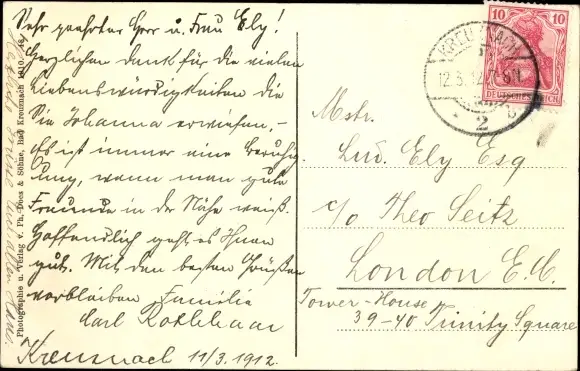 Sehr geehrter Herr u. Frau Ely!
Herzlichen dank für die vielen
Liebenswürdigkeiten die
Sie Johanna erwiesen, -
Es ist immer eine Beruhig
ung, wenn man gute
Freunde in der Nähe weiß.
Hoffendlich geht es Ihnen
gut. Mit den besten Grüßen
verbleiben Familie
Carl Rothhaar
Kreuznach 11/3. 1912.
Photographie u. Verlag v. Ph. Dees & Söhne, Bad Kreuznach 1910. 48
KREUZNACH
12.3.12.7-8N.
* 2 b
10 10
DEUTSCHES REICH
Mstr.
Lud. Ely Esq
c/o Theo Seitz
London E.C.
Tower-House
39-40 Trinity Square